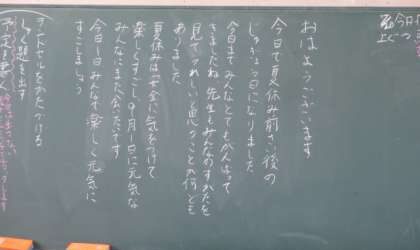 おはようございます
今日で夏休み前さい後の
じゅぎょう日になりました
今日までみんなとてもがんばって
きましたね 先生もみんなのすがたを
見てうれしいと思うことが何ども
ありました
夏休みは安全に気をつけて
楽しくすごし9月1日に元気な
みんなにまた会いたいです
今日1日みんなで楽しく元気に
すごしましょう
ランドセルをかたづける
しゅく題を出す